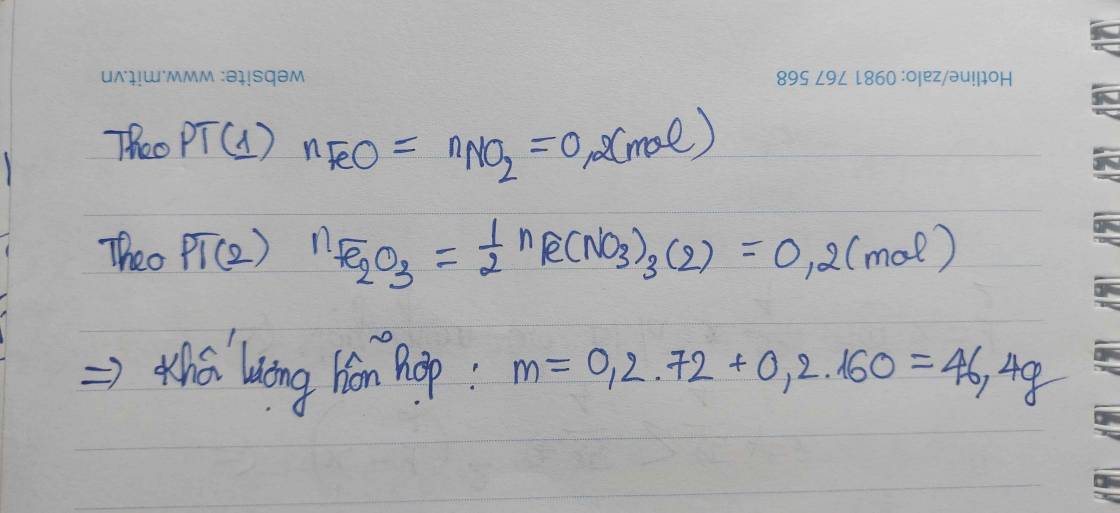 website: www.mit.vn Hotline/zalo: 0981 767 568
Theo PT(1) nFeO = nNO₂ = 0,2(mol)
Theo PT(2) nFe₂O₃ = 1/2 nFe(NO₃)₃(2) = 0,2(mol)
=> Khối lượng hỗn hợp : m = 0,2.72 + 0,2.160 = 46,4g